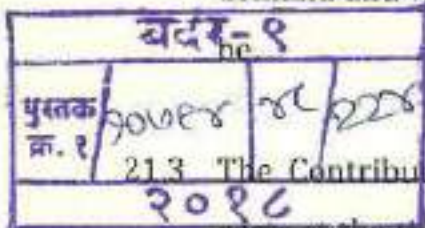 बदर-९
he
पुस्तक
क्र. १ १०७९४ ४८ २२४
21.3 The Contribu
२०१८